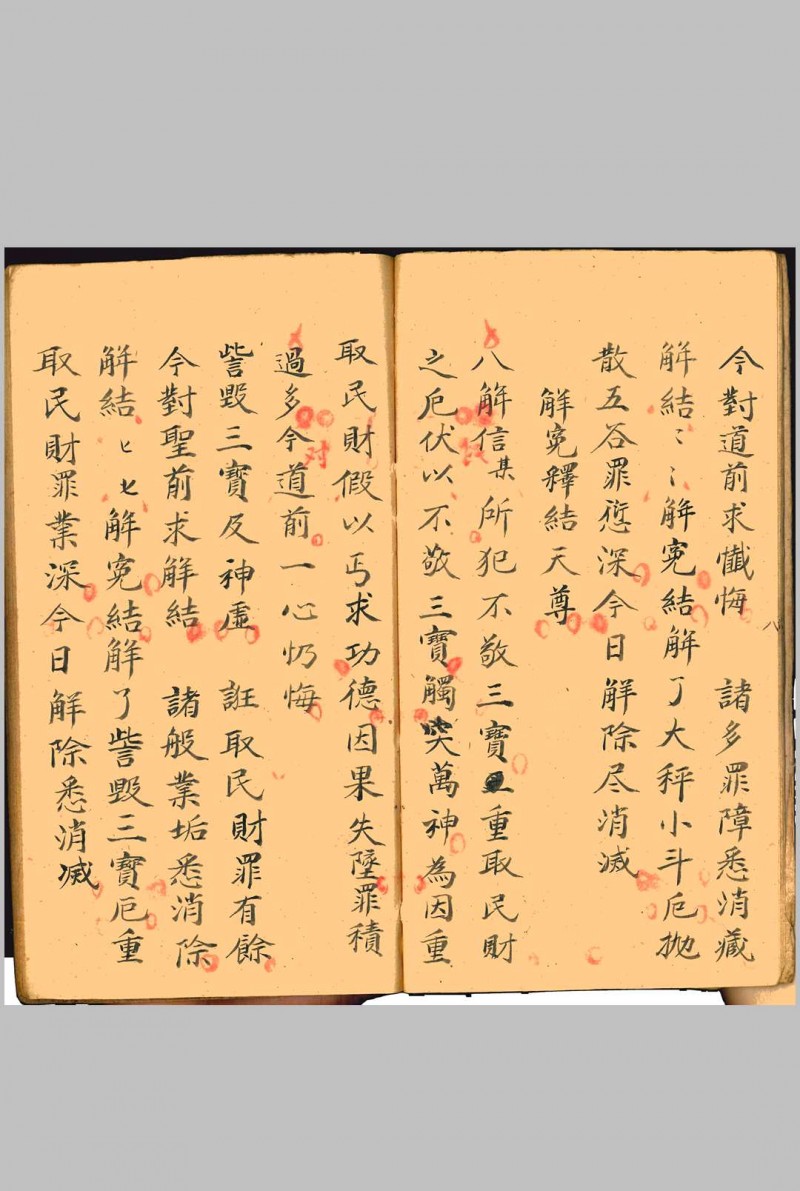 今對道前求懺悔　諸多罪障悉消藏
解結〻〻解寃結解了大秤小斗厄抛
散五谷罪愆深今日解除尽消滅
解寃釋結天尊
八解信某所犯不敬三寶重取民財
之厄伏以不敬三寶觸突萬神為因重
取民財假以丐求功德因果失墜罪積
過多今道前一心忉悔
对
訾毀三寶及神虛　誑取民財罪有餘
今對聖前求解結　諸般業垢悉消除
解結〻〻解寃結解了訾毀三寶厄重
取民財罪業深今日解除悉消滅
八